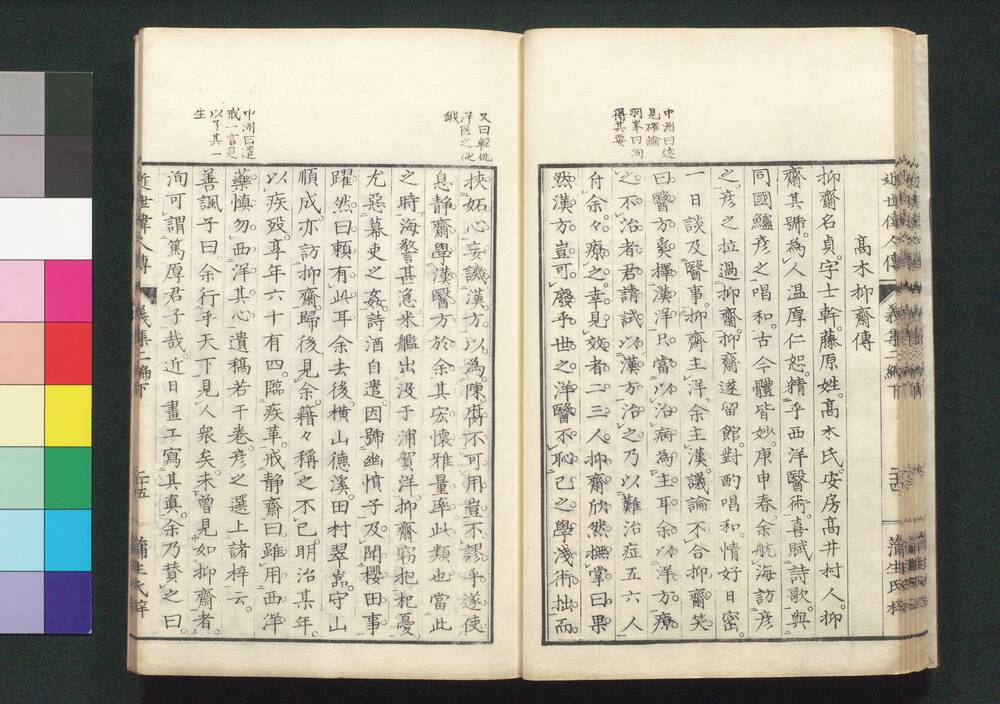 中洲曰遠
見確論
羽峯曰洵
得其要
高木抑齋傳
抑齋名貞。字士幹。藤原姓。高木氏。安房高井村人。抑
齋其號。為人溫厚仁恕。精乎西洋醫術。喜賦詩歌。與
同國鱸彥之唱和。古今體皆妙。庚申春、余航海訪彥
之。彥之拉過抑齋。抑齋遂留館。對酌唱和。情好日密。
一日談及醫事。抑齋主洋、余主漢。議論不合。抑齋笑
曰。醫方奚擇漢洋。只當以治病為主耳。余以洋方療
之。不治者君請試以漢方治之。乃以難治症五六人
付余。余療之。幸見效者二三人。抑齋欣然撫掌曰。果
然。漢方豈可廢乎。世之洋醫。不恥己之學淺術拙。而
近世偉人傳
義集二編下
二十四
蒲生氏梓
又曰輕佻
洋醫之他
鍼
挾妬心妄譏漢方。以為陳腐不可用。豈不謬乎。遂使
息靜齋學漢醫方於余。其宏懷雅量率此類也。當此
之時。海警甚急。米艦出沒于浦賀洋。抑齋竊抱杞憂
尤惡幕吏之姦。詩酒自遣。因號幽憤子。及聞櫻田事
躍然曰。賴有此耳。余去後。橫山德溪。田村翠嵓。守山
順成。亦訪抑齋。歸後見余。藉々稱之不已。明治某年。
以疾歿。享年六十有四。臨疾革。戒靜齋曰。雖用西洋
藥。慎勿西洋其心。遺稿若干卷。彥之選上諸梓云。
善諷子曰。余行乎天下。見人衆矣。未曾見如抑齋者。
洵可謂篤厚君子哉。近日畫工寫其真。余乃贊之曰。
中洲曰遺
戒一言足
以了其一
生
近世偉人傳
義集二編下
二十五
蒲生氏梓